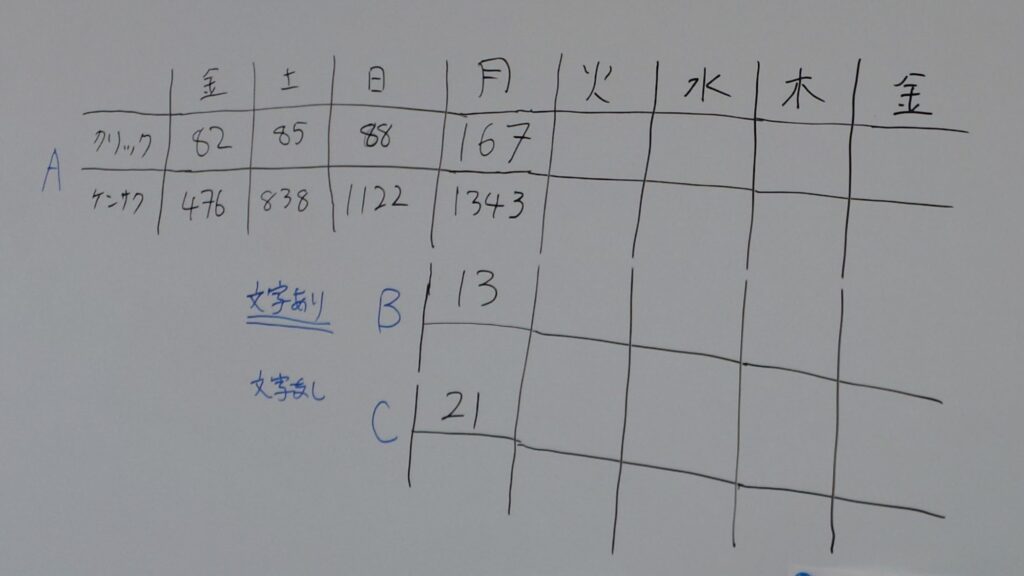 金 土 日 月 火 水 木 金
A
クリック 82 85 88 167
ケンサク 476 838 1122 1343
文字あり B 13
文字なし C 21